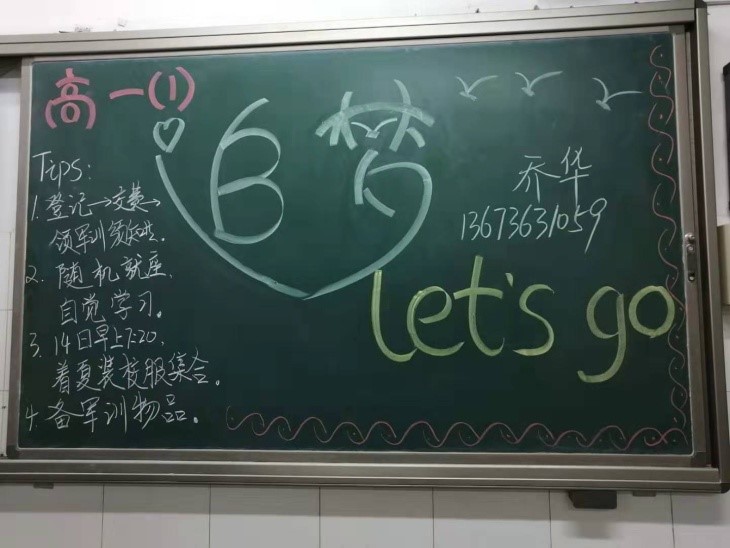 高一(1)
追梦
Tips:
1. 登记→交表→
领军训须知.
2. 随机就座,
自觉学习。
3. 14日早上7:20,
着夏装校服集合。
4. 备军训物品。
乔华
13673631059
let's go